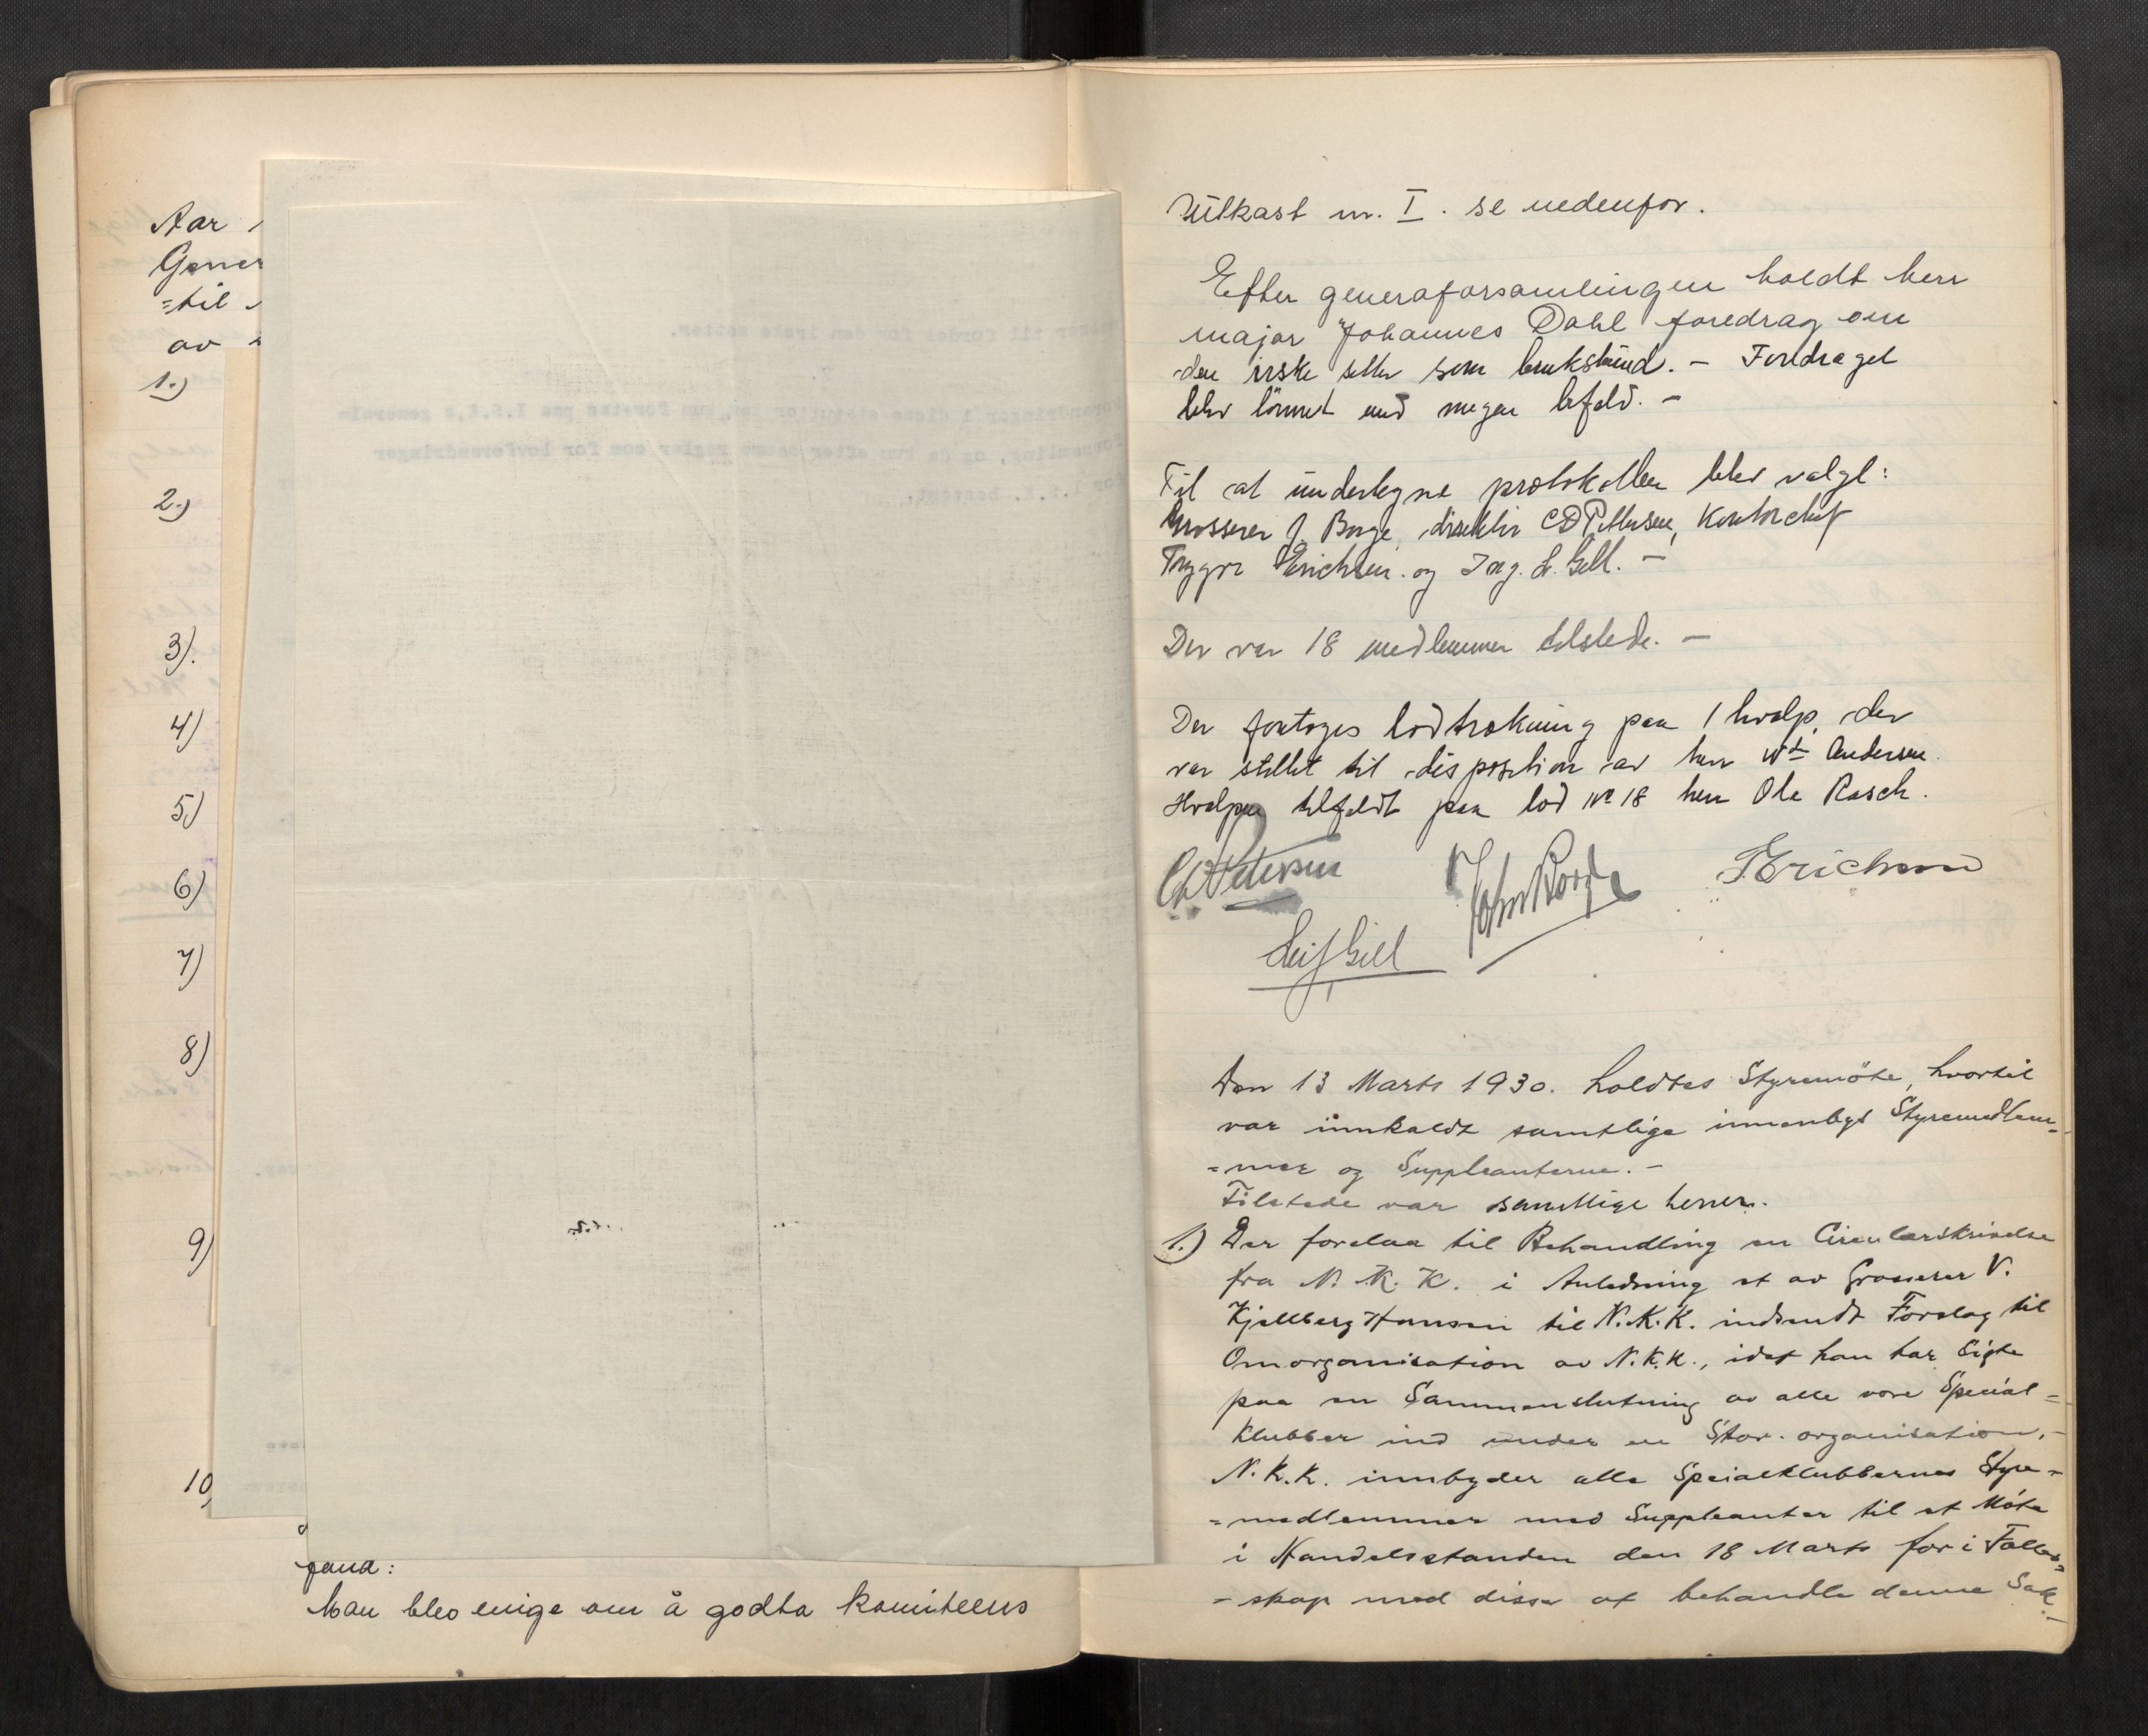 Aar
Gener
=til
av
1.)
2.)
3).
4)
5)
6)
7)
8)
9)
10,
fond:
Man blev enige om å godta komiteens
Utkast nr. I. se nedenfor.
Efter generaforsamlingen holdt herr
major Johannes Dahl foredrag om
den irske setter som brukshund. – Foredraget
blev lönnet med megen bifald. –
Til at undertegne protokollen blev valgt:
Grosserer J. Borge, direktör C D Pettersen, Kontorchef
Trygve Erichsen. og Ing. L. Gill. –
Der var 18 medlemmer tilstede. –
Der foretoges lodtrækning paa 1 hvalp, der
var stillet til disposition av herr Wd Andersen.
Hvalpen tilfaldt paa lod No 18 herr Ole Rasch.
C D Petersen John Borge T Erichsen
Leif Gill
Den 13 Marts 1930. holdtes Styremöte, hvortil
var innkaldt samtlige innenbys Styremedlem-
=mer og Suppleanterne. –
Tilstede var samtlige herrer.
1.) Der forelaa til Behandling en Circulærskrivelse
fra N. K. K. i Anledning et av Grosserer V.
Kjellberg Hansen til N.K.K. indsendt Forslag til
Omorganisation av N.K.K., idet han har Sigte
paa en Sammenslutning av alle vore Special=
klubber ind under en Stor-organisation. –
N.K.K. innbyder alle Specialklubbernes Styre=
=medlemmer med Suppleanter til et Möte
i Handelsstanden den 18 Marts for i Felles=
=skap med disse at behandle denne Sak –